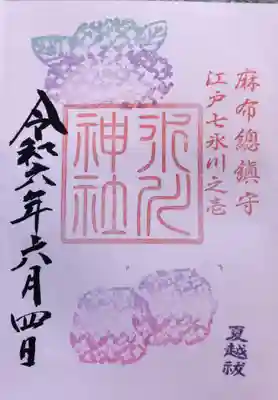 麻布總鎮守
江戸七氷川之壱
氷川
神社
夏越祓
令和六年六月四日